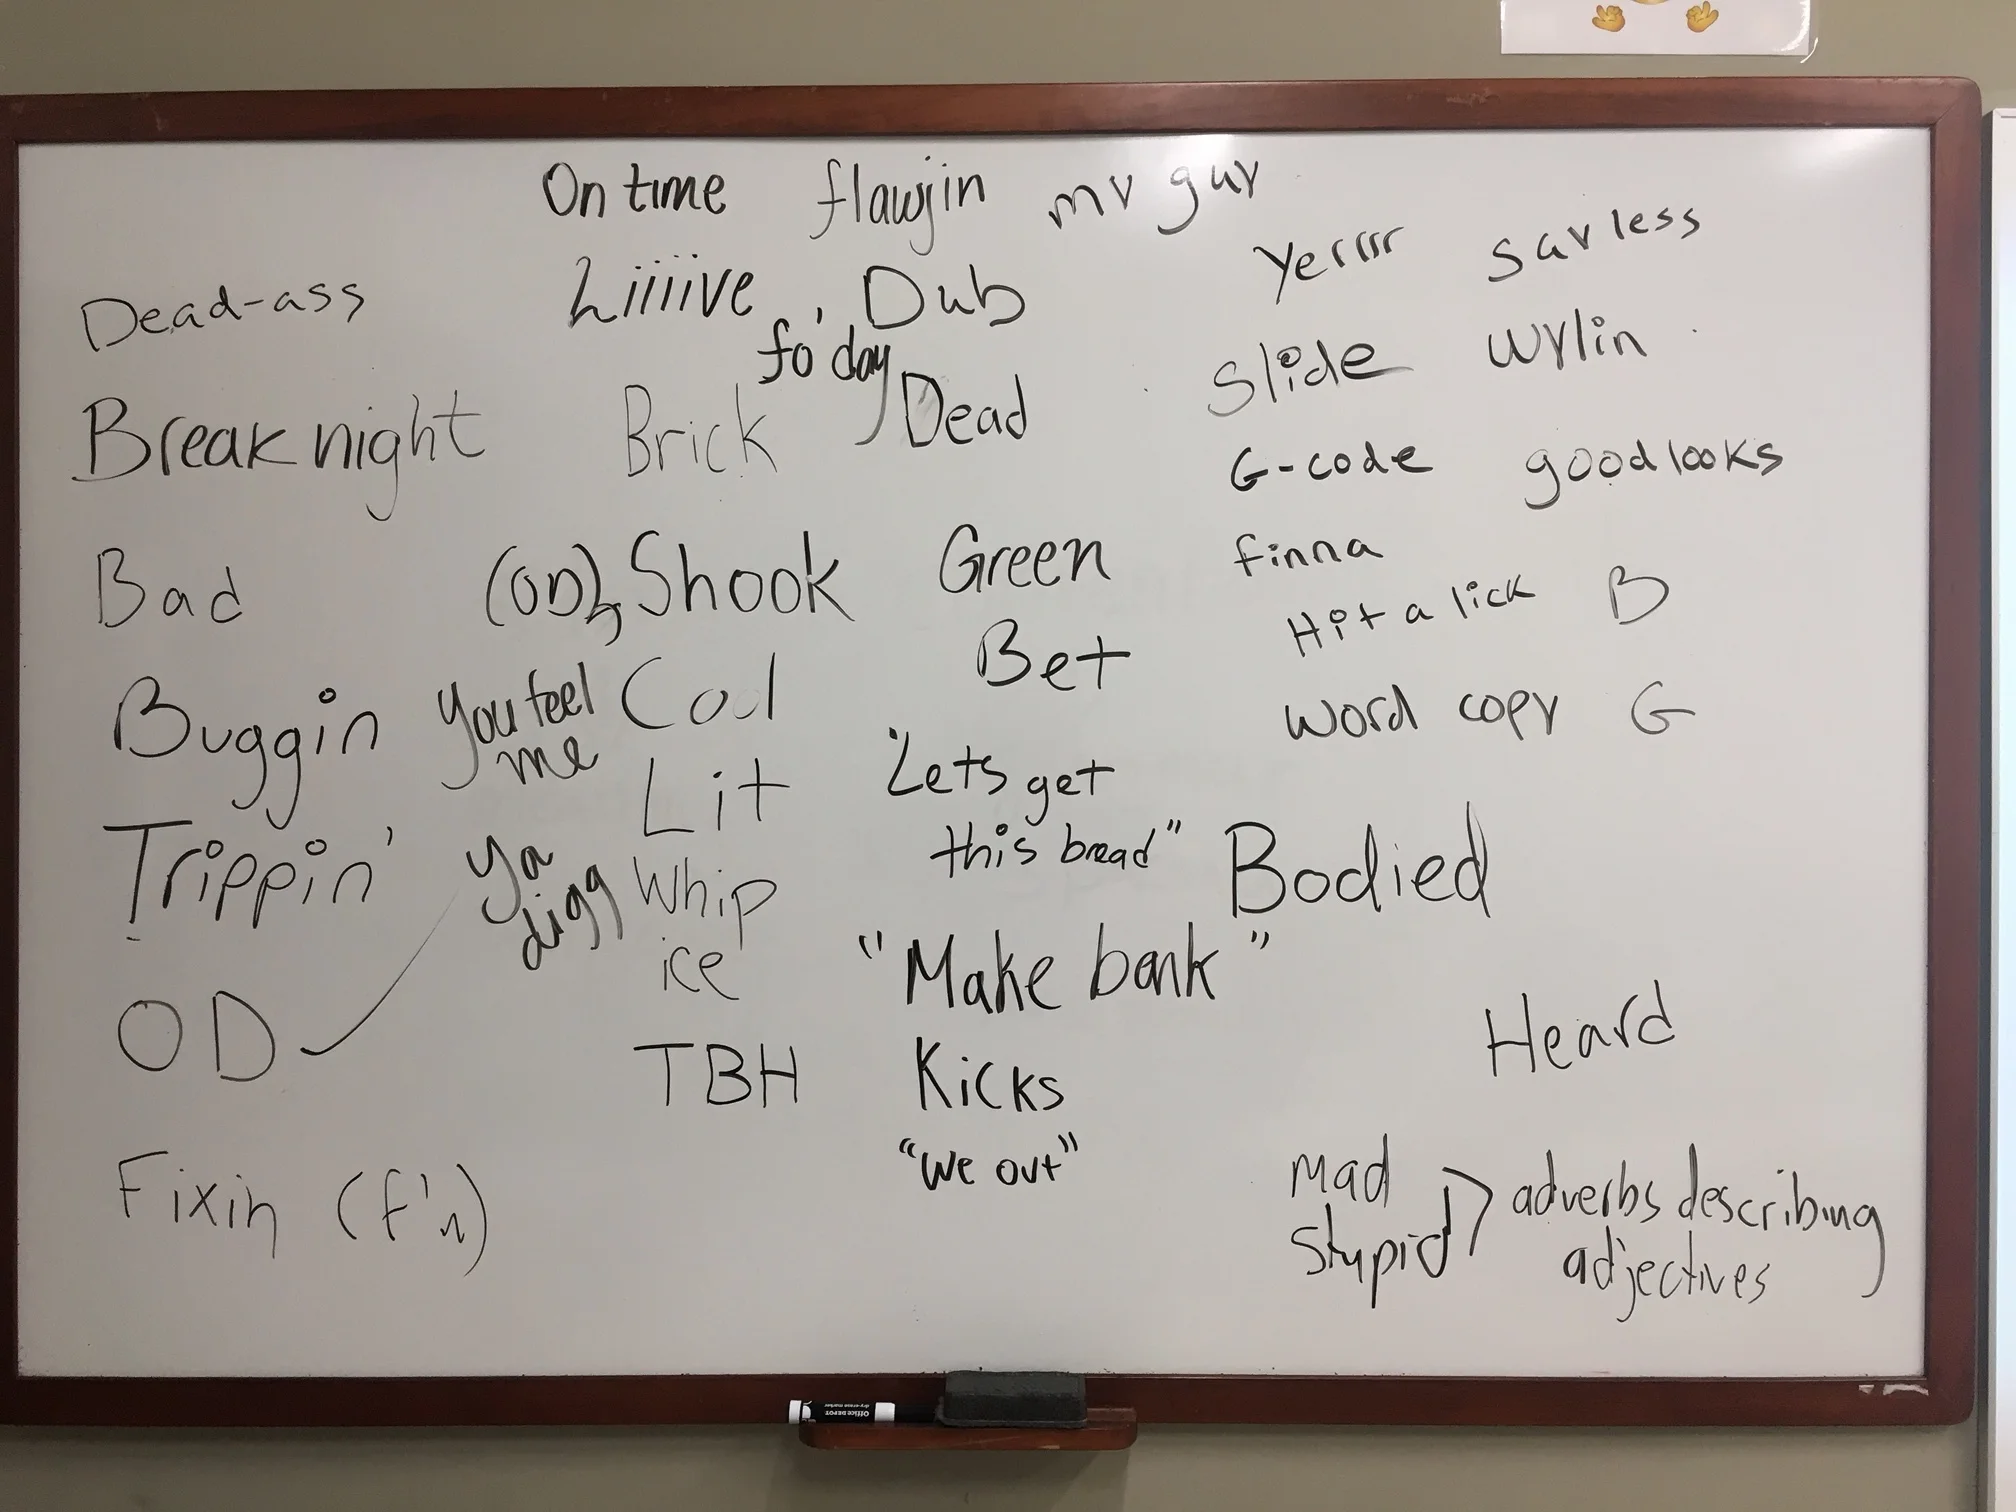 On time flawjin my guy
Liiiive, Dub
Yerrrr say less
Dead-ass
fo' day
Slide wylin
Break night Brick Dead
G-code good looks
Bad (OD), Shook Green
finna
Hit a lick B
Bet
Buggin You feel me Cool
word copy G
Lit "Lets get
this bread"
Trippin' Ya digg Whip
Bodied
ice "Make bank"
OD
TBH Kicks
Heard
"We out"
Fixin (f'n)
mad
stupid > adverbs describing
adjectives
Office DEPOT
dry-erase marker